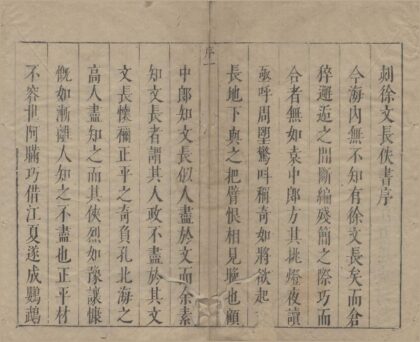 刻徐文長佚書序
今海內無不知有徐文長矣而倉
猝邂逅之間斷編殘簡之際巧而
合者無如袁中郎方其挑燈夜讀
亟呼周望驚呼稱奇如將欲起
長地下與之把臂恨相見晚也顧
序一
中郎知文長似人盡於文而余素
知文長者謂其人政不盡於其文
文長懷禰正平之奇負孔北海之
高人盡知之而其俠烈如豫讓慷
慨如漸離人知之不盡也正平材
不容世阿瞞巧借江夏遂成鸚鵡